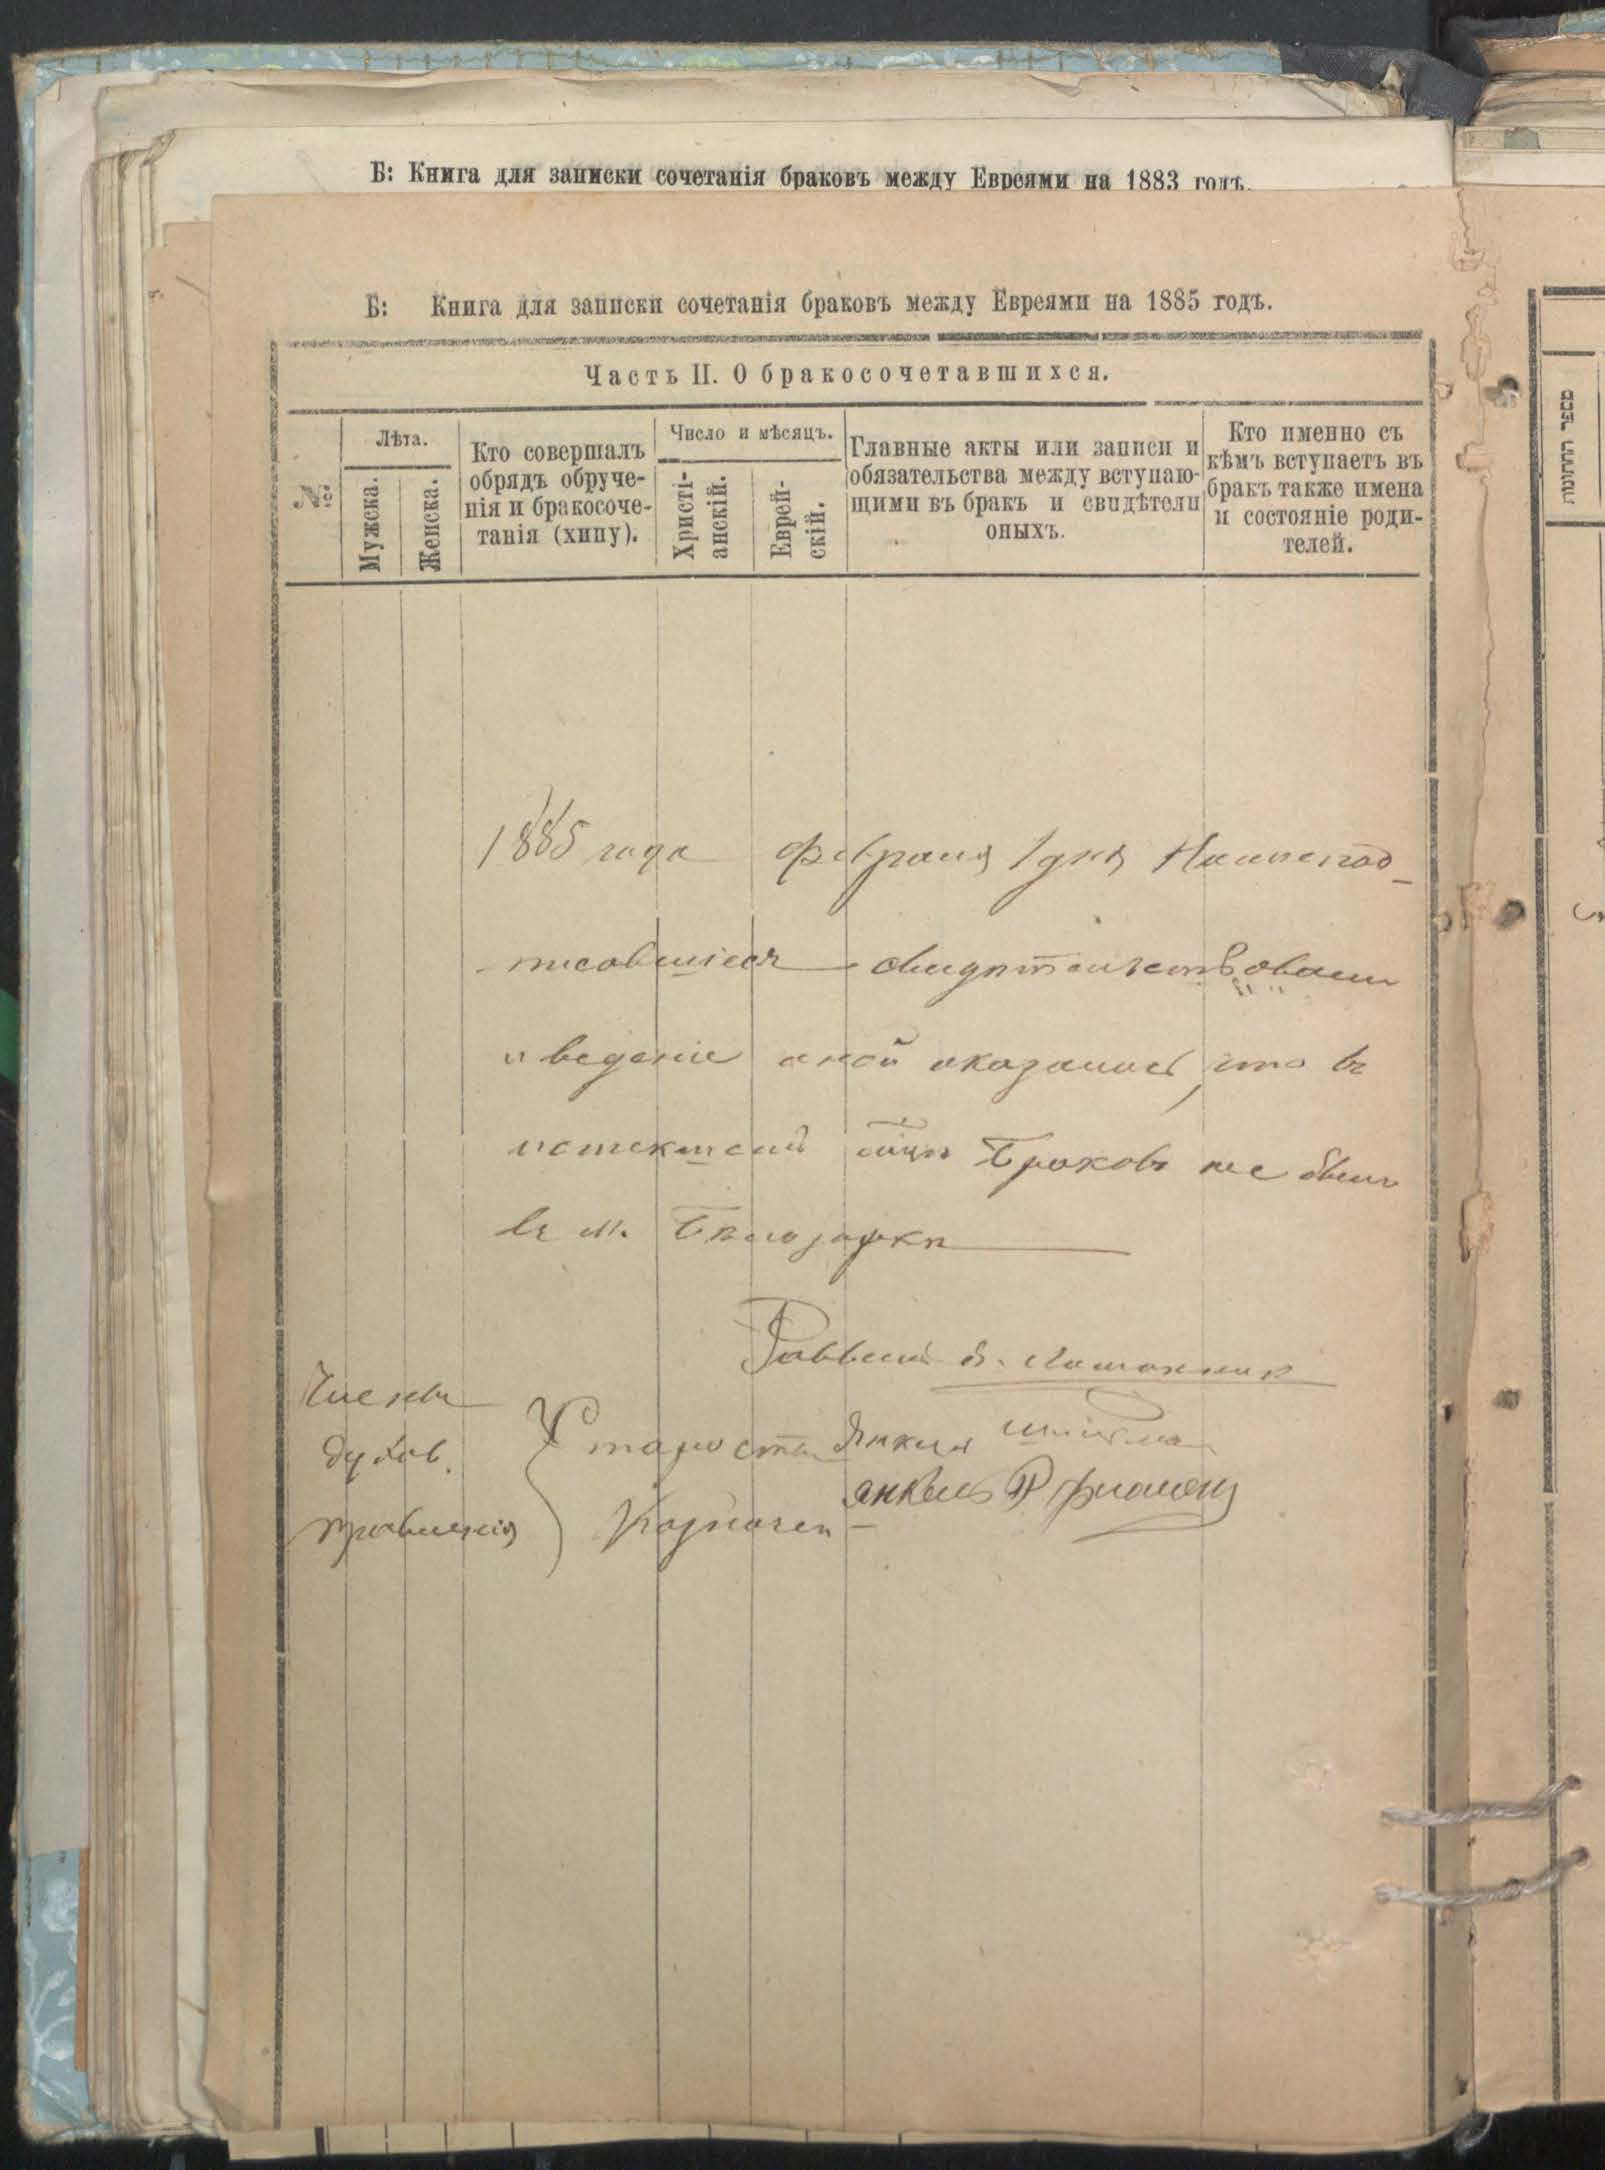 Б: Книга для записки сочетанія браковъ между Евреями на 1883 годъ.
Б: Книга для записки сочетанія браковъ между Евреями на 1885 годъ.
Часть II. О бракосочетавшихся.
№
Лѣта.
Мужска.
Женска.
Кто совершалъ
обрядъ обруче-
нія и бракосоче-
танія (хипу).
Число и мѣсяцъ.
Христі-
анскій.
Еврей-
скій.
Главные акты или записи и
обязательства между вступаю-
щими въ бракъ и свидѣтели
оныхъ.
Кто именно съ
кѣмъ вступаетъ въ
бракъ также имена
и состояніе роди-
телей.
1885 года февраля 1 дня Нижепод-
писавшіеся свидѣтельствовали
и веденіе оказалось, что въ
истекшемъ Браковъ не было
въ м. Бѣлозоркѣ
Раввинъ
Члены
духов.
правленія
Староста Янкель
Казначей - Янкель